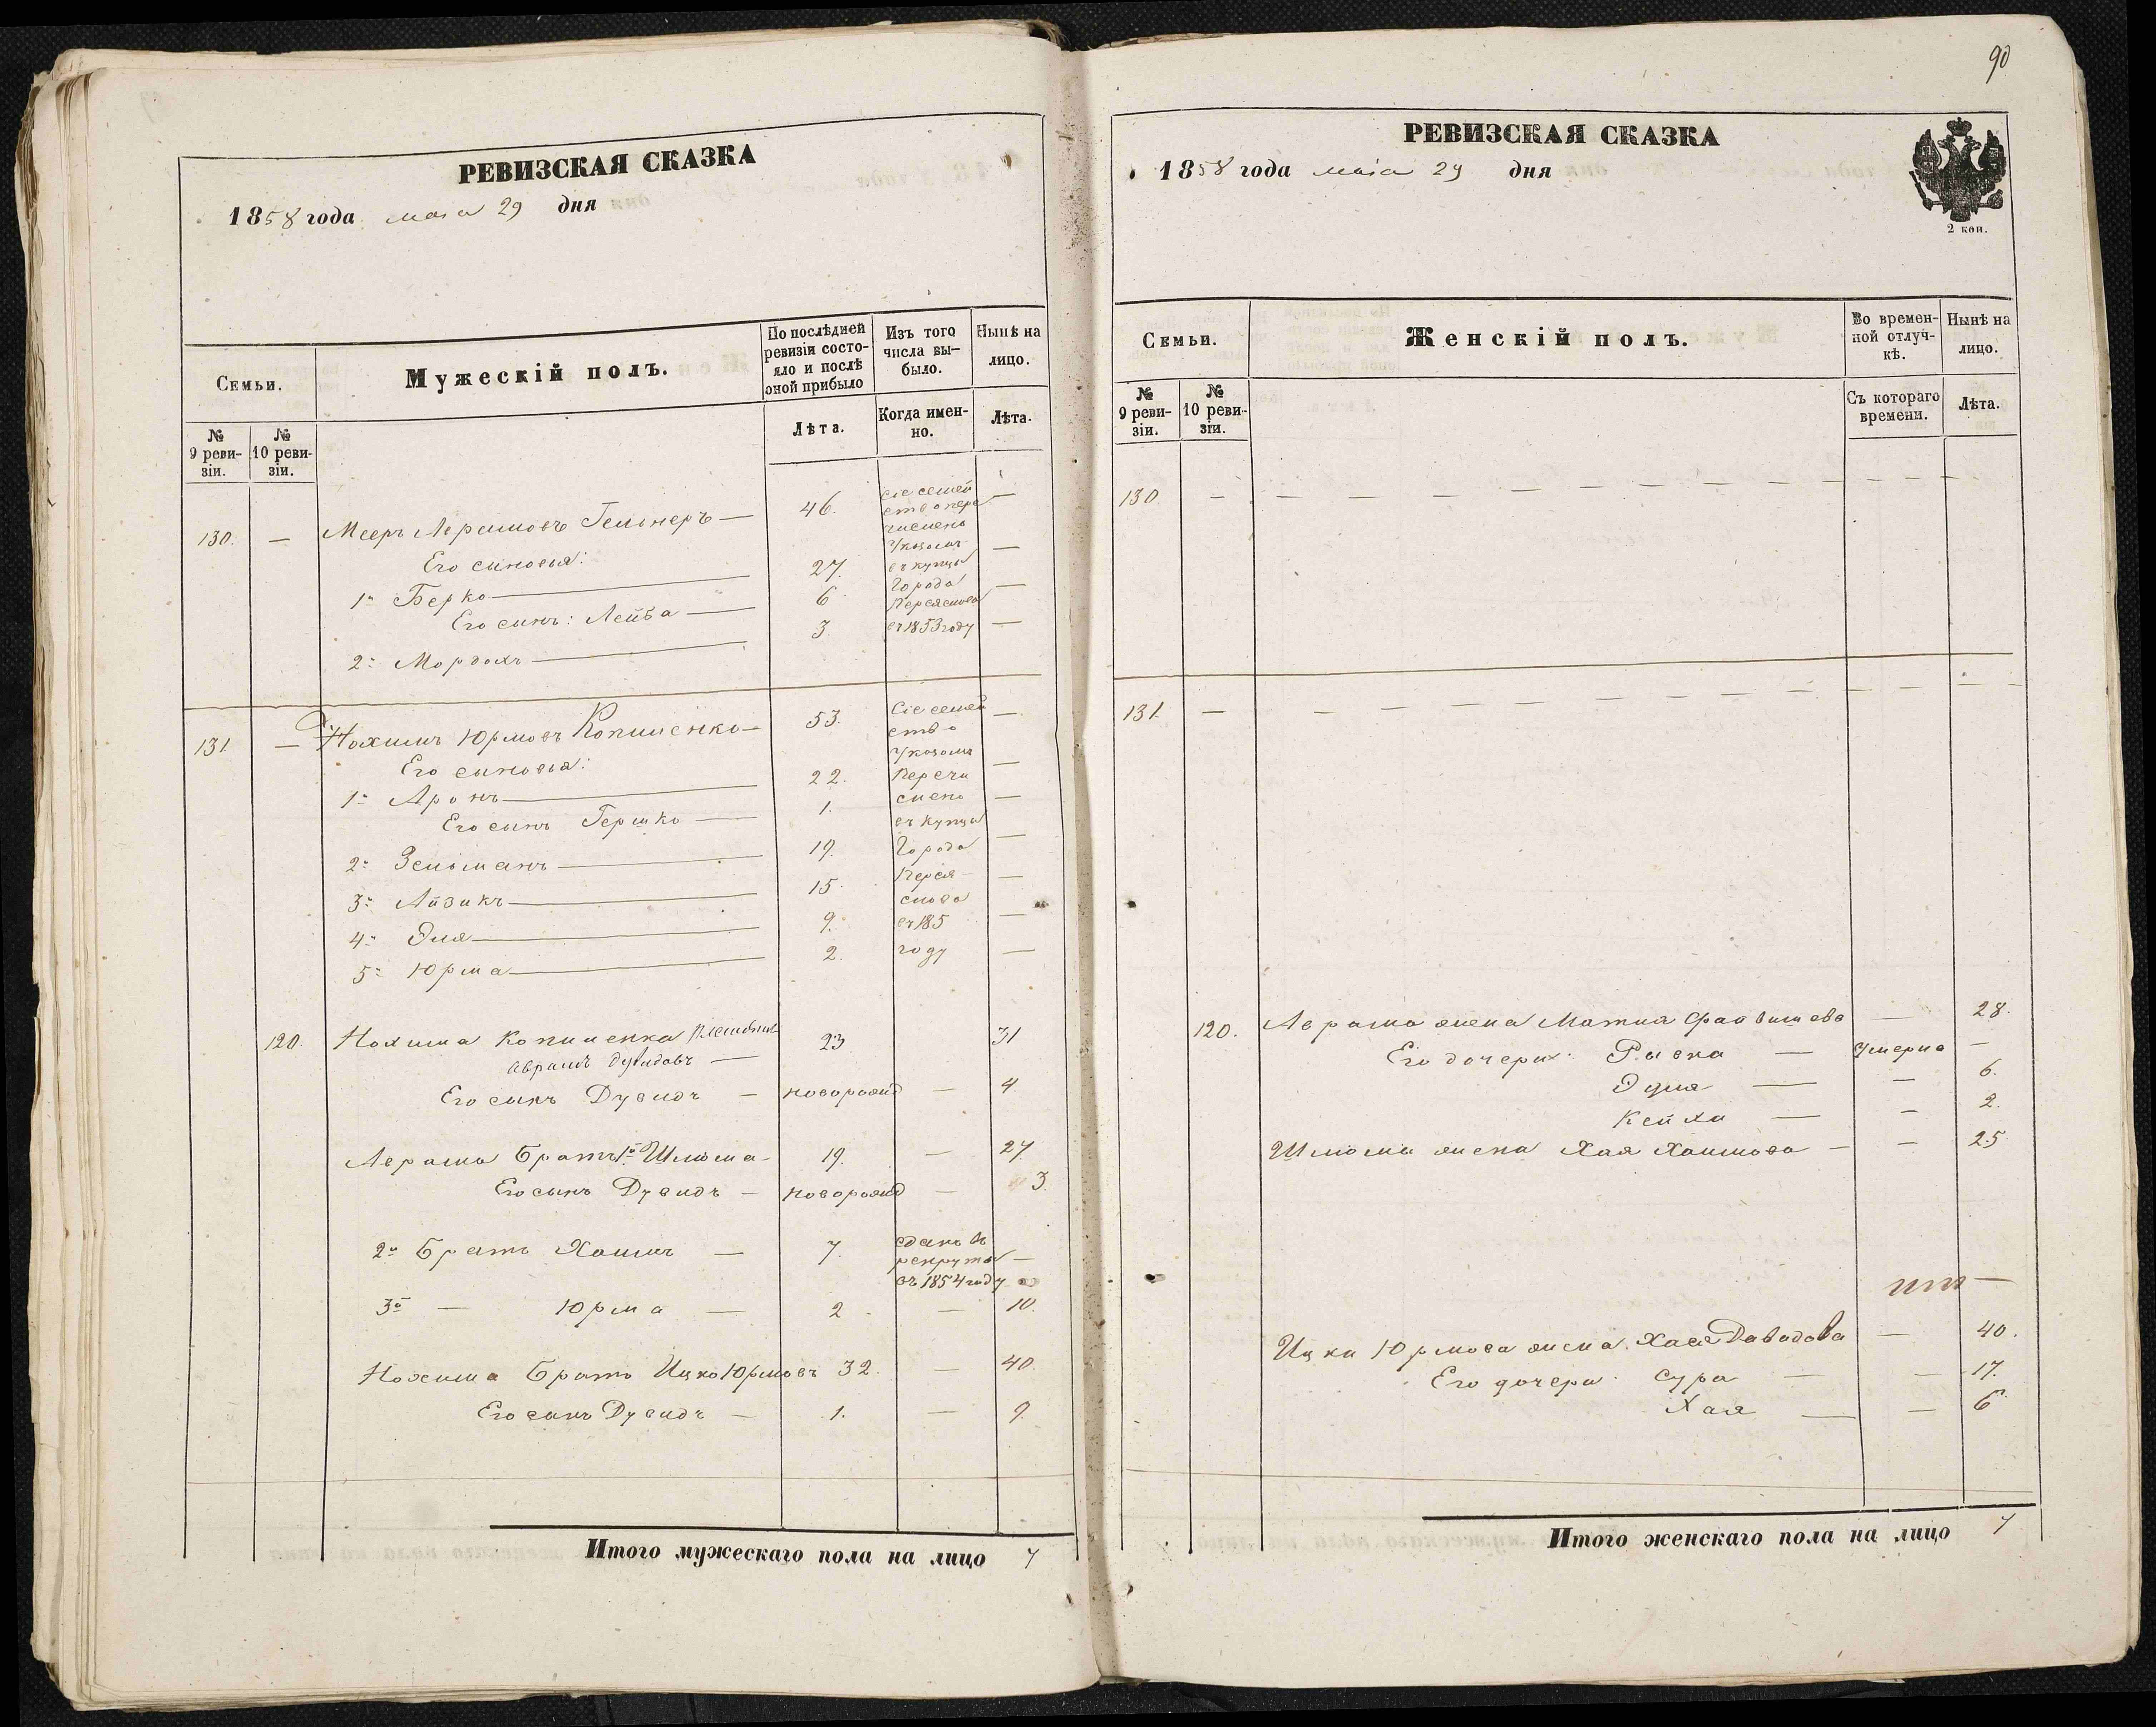 РЕВИЗСКАЯ СКАЗКА
1858 года мая 29 дня
Семьи.
Мужескій полъ.
По послѣдней ревизіи состояло и послѣ оной прибыло
Изъ того числа выбыло.
Нынѣ на лицо.
№ 9 ревизіи.
№ 10 ревизіи.
Лѣта.
Когда именно.
Лѣта.
130. — Мееръ Аврамовъ — 46. —
Сіе семейство перечислено указомъ въ купцы города Переяслова въ 1853 году
Его сыновья:
1й Берко — 27. —
Его сынъ: Лейба — 6 —
2й Мордохъ — 3. —
131. — Нохимъ Юрмовъ Копиленко — 53. —
Сіе семейство указомъ перечислено въ купцы города Переяслова въ 185 году
Его сыновья:
1й Аронъ — 22. —
Его сынъ Гершко — 1. —
2й Зельманъ — 19. —
3й Айзикъ — 15. —
4й Эля — 9. —
5й Юрма — 2. —
120. Нохима племянникъ
Аврамъ Дувидовъ — 23 31
Его сынъ Дувидъ — новорожд — 4
Аврама братъ 1й Шлема — 19. — 27
Его сынъ Дувидъ — новорожд — 3.
2й Братъ Хаимъ — 7. сданъ въ рекруты въ 1854 году —
3й — Юрма — 2 — 10.
Нохима Братъ Ицко Юрмовъ 32. — 40.
Его сынъ Дувидъ — 1. — 9.
Итого мужескаго пола на лицо 7
90
РЕВИЗСКАЯ СКАЗКА
1858 года маія 29 дня
2 коп.
Семьи.
Женскій полъ.
Во временной отлучкѣ.
Нынѣ на лицо.
№ 9 ревизіи.
№ 10 ревизіи.
Съ котораго времени.
Лѣта.
130 — — — — — — — — — —
131. — — — — — — — — — —
120. Аврама жена — 28.
Его дочери: Рыска — умерла —
— — 6.
Кейла — — 2.
Шлемы жена Хая Хаимова — — 25
Ицки Юрмова жена Хася Давидова — 40.
Его дочери: Сура — — 17.
Хая — — 6
Итого женскаго пола на лицо 7